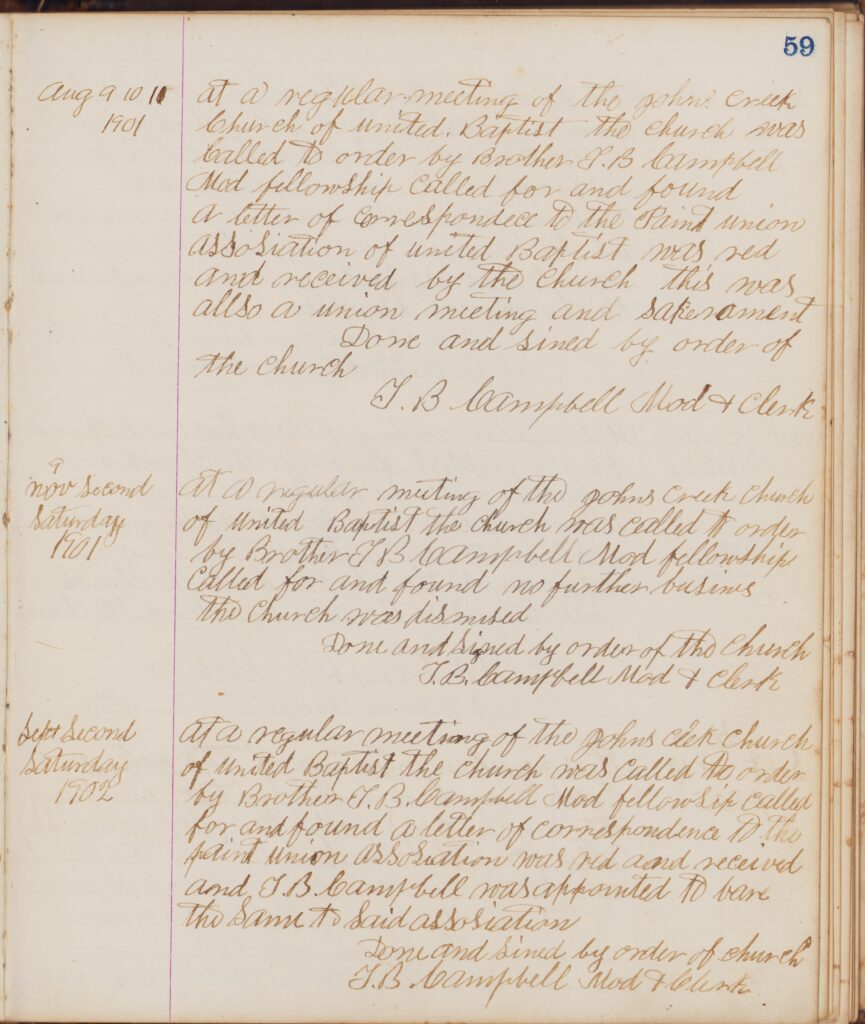 59
Aug 9 10 11
1901
at a regular meeting of the Johns Creek
Church of united Baptist the church was
Called to order by Brother T. B Campbell
Mod fellowship called for and found
a letter of correspondece to the Paint union
assosiation of united Baptist was red
and received by the church this was
allso a union meeting and sakerament
Done and sined by order of
the church
T. B Campbell Mod & Clerk
9
nov second
Saturday
1901
at a regular meeting of the Johns Creek church
of united Baptist the church was called to order
by Brother T B Campbell Mod fellowship
called for and found no further busines
the church was dismised
Done and sined by order of the church
T. B. Campbell Mod & Clerk
Sept Second
Saturday
1902
at a regular meeting of the Johns ceek church
of united Baptist the church was called to order
by Brother T. B. Campbell Mod fellowship called
for and found a letter of correspondence to the
paint union assosiation was red and received
and T. B. Campbell was appointed to bare
the same to said assosiation
Done and sined by order of church
T. B. Campbell Mod & Clerk